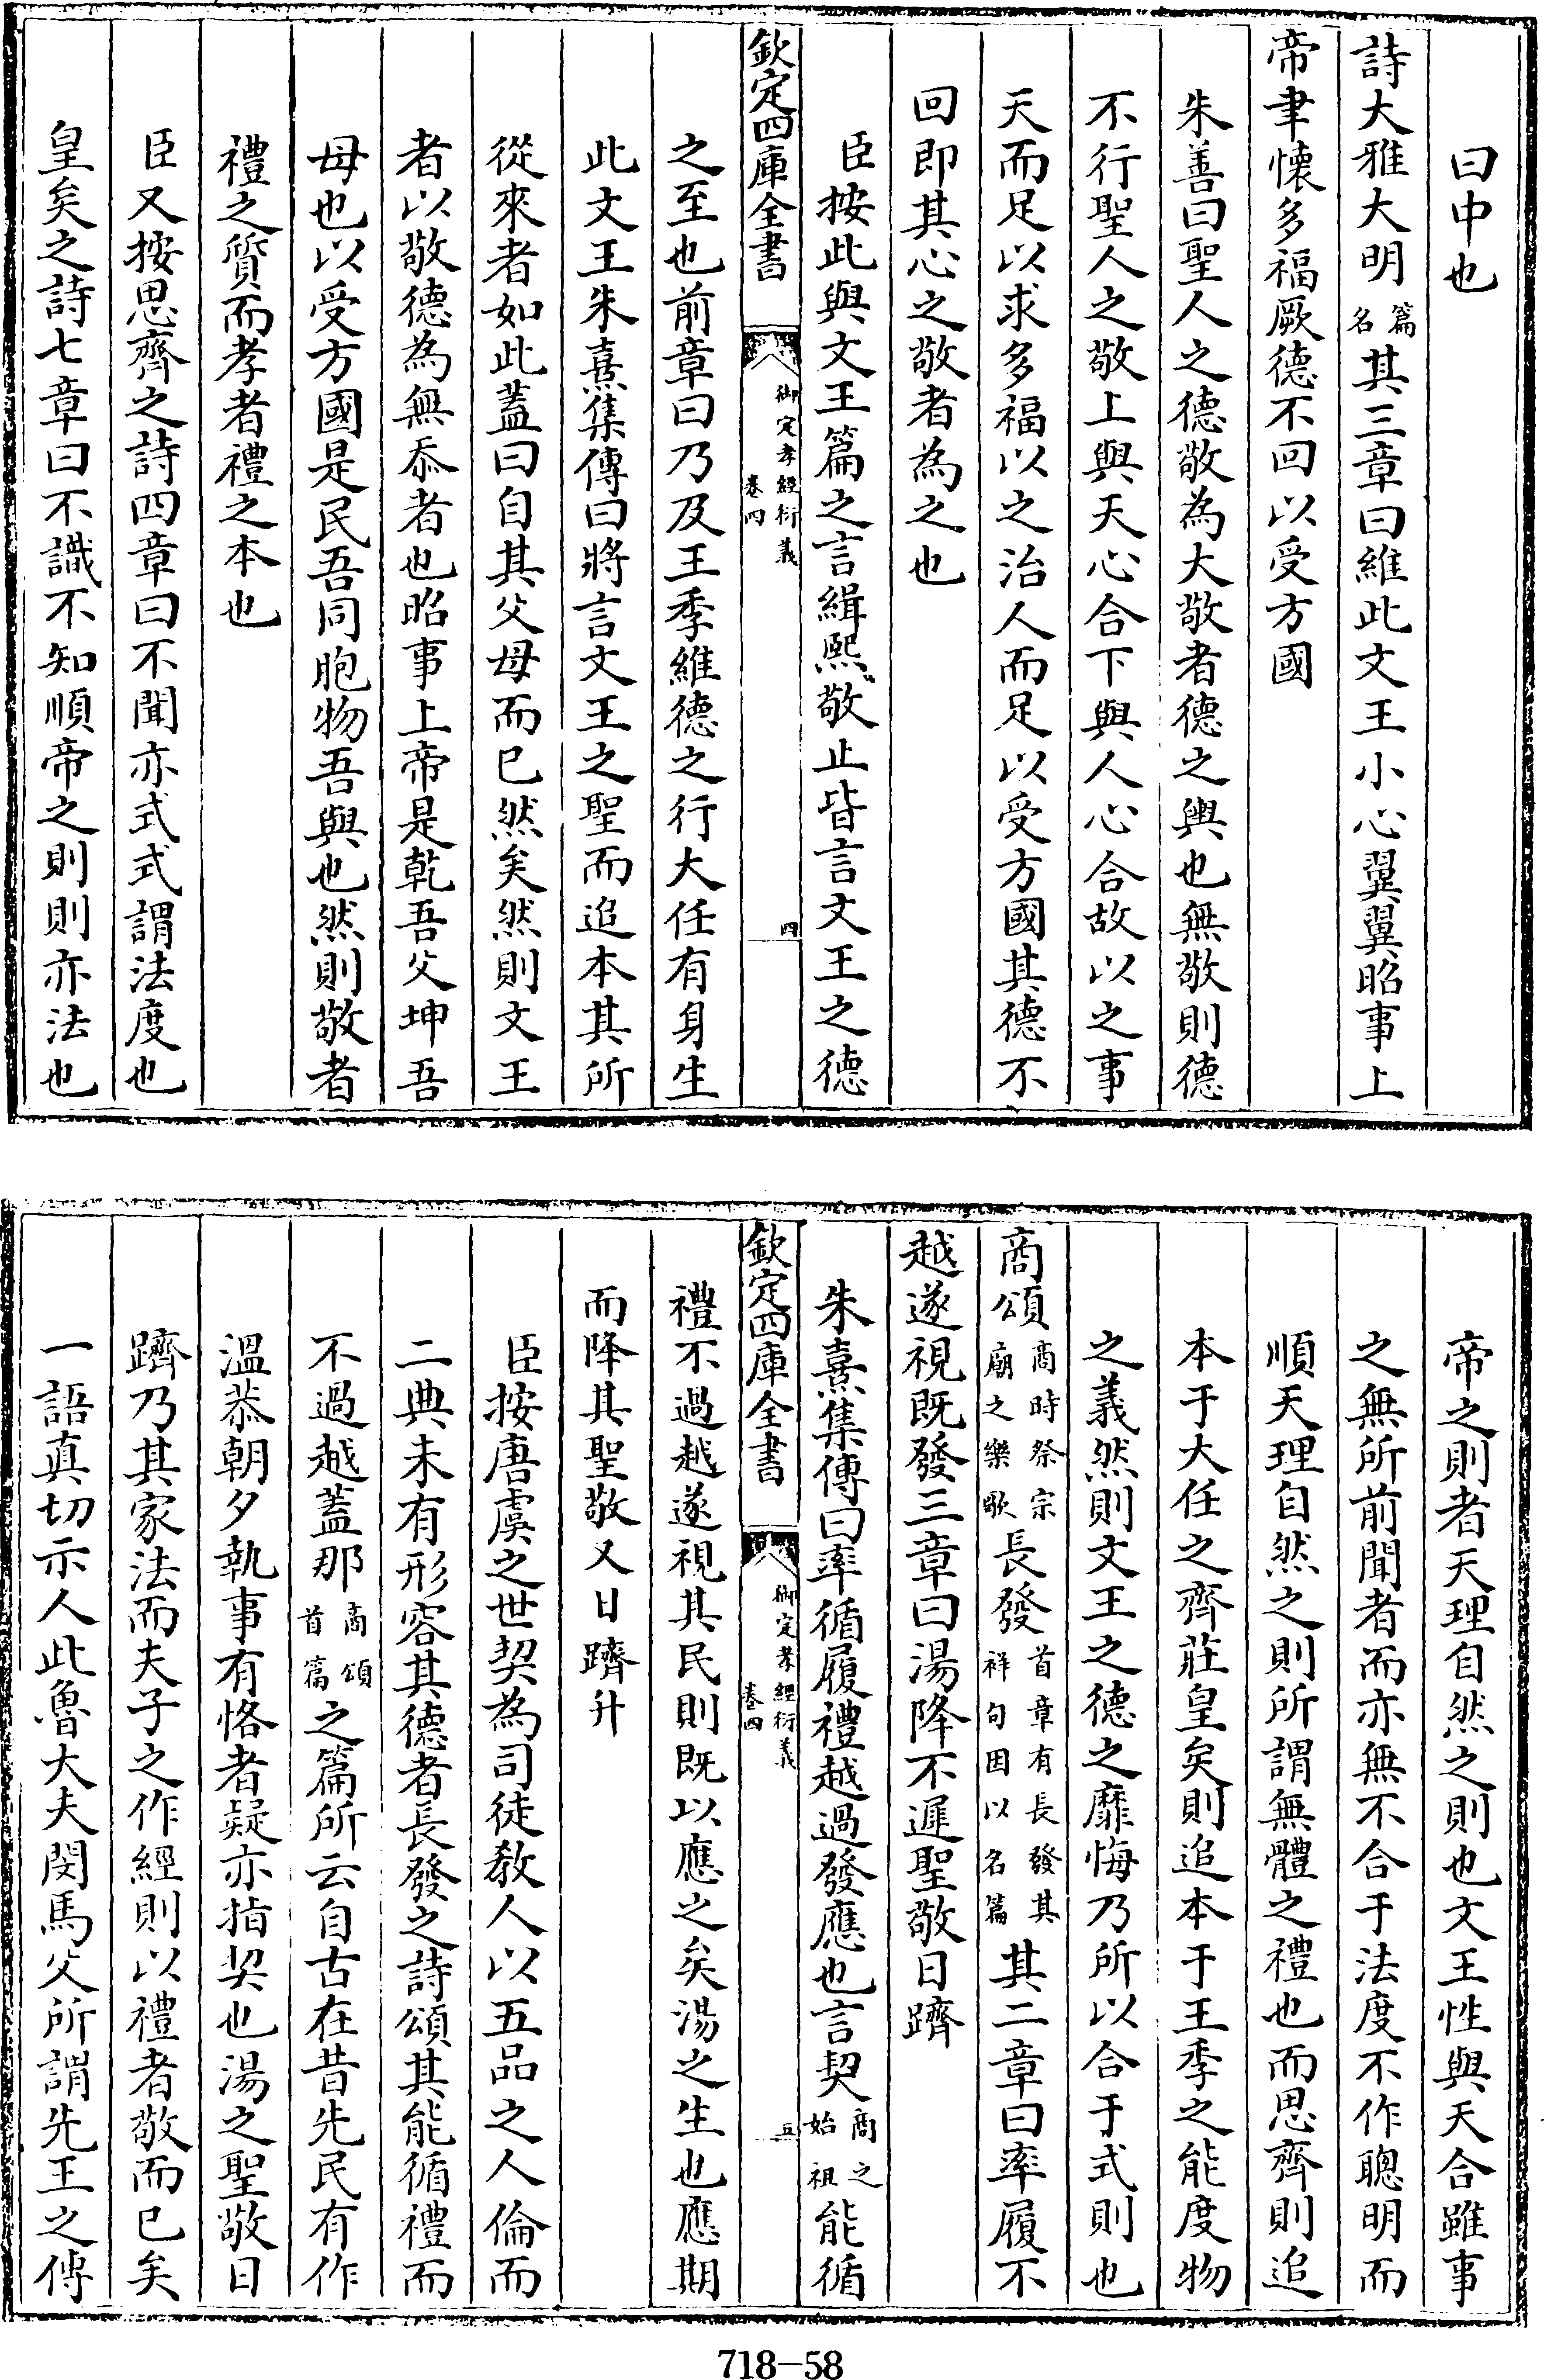 曰中也
詩大雅大明篇名其三章曰維此文王小心翼翼昭事上
帝聿懷多福厥德不回以受方國
朱善曰聖人之德敬為大敬者德之輿也無敬則德
不行聖人之敬上與天心合下與人心合故以之事
天而足以求多福以之治人而足以受方國其德不
回即其心之敬者為之也
臣按此與文王篇之言緝熙敬止皆言文王之德
欽定四庫全書 御定孝經衍義 卷四 四
之至也前章曰乃及王季維德之行大任有身生
此文王朱熹集傳曰將言文王之聖而追本其所
從來者如此蓋曰自其父母而已然矣然則文王
者以敬德為無忝者也昭事上帝是乾吾父坤吾
母也以受方國是民吾同胞物吾與也然則敬者
禮之質而孝者禮之本也
臣又按思齊之詩四章曰不聞亦式式謂法度也
皇矣之詩七章曰不識不知順帝之則則亦法也
帝之則者天理自然之則也文王性與天合雖事
之無所前聞者而亦無不合于法度不作聰明而
順天理自然之則所謂無體之禮也而思齊則追
本于大任之齊莊皇矣則追本于王季之能度物
之義然則文王之德之靡悔乃所以合于式則也
商頌商時祭宗廟之樂歌長發首章有長發其祥句因以名篇其二章曰率履不
越遂視既發三章曰湯降不遲聖敬日躋
朱熹集傳曰率循履禮越過發應也言契商之始祖能循
欽定四庫全書 御定孝經衍義 卷四 五
禮不過越遂視其民則既以應之矣湯之生也應期
而降其聖敬又日躋升
臣按唐虞之世契為司徒教人以五品之人倫而
二典未有形容其德者長發之詩頌其能循禮而
不過越蓋那商頌首篇之篇所云自古在昔先民有作
溫恭朝夕執事有恪者疑亦指契也湯之聖敬日
躋乃其家法而夫子之作經則以禮者敬而已矣
一語真切示人此魯大夫閔馬父所謂先王之傳
718-58